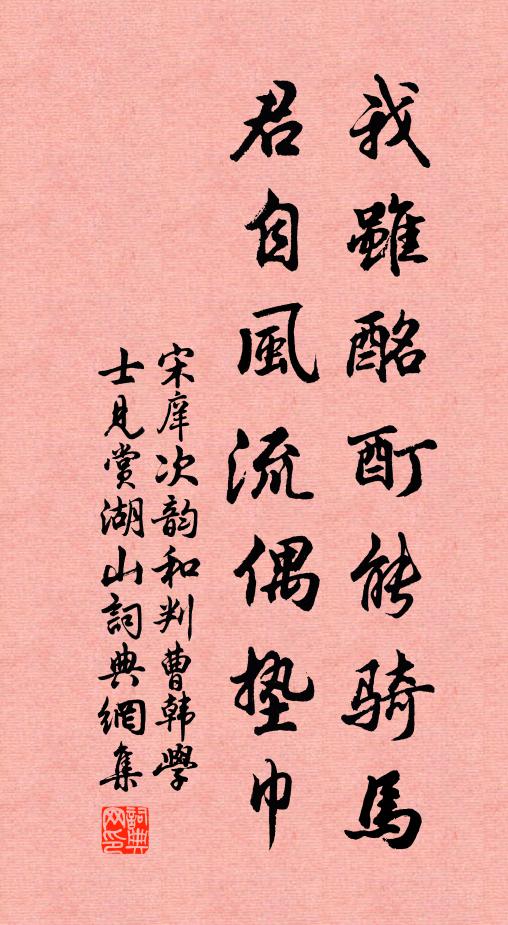 我雖酩酊能騎馬
君自風流偶墊巾
宋庠次韵和判曹韩學
士見賞湖山詞典網集
詞典网印